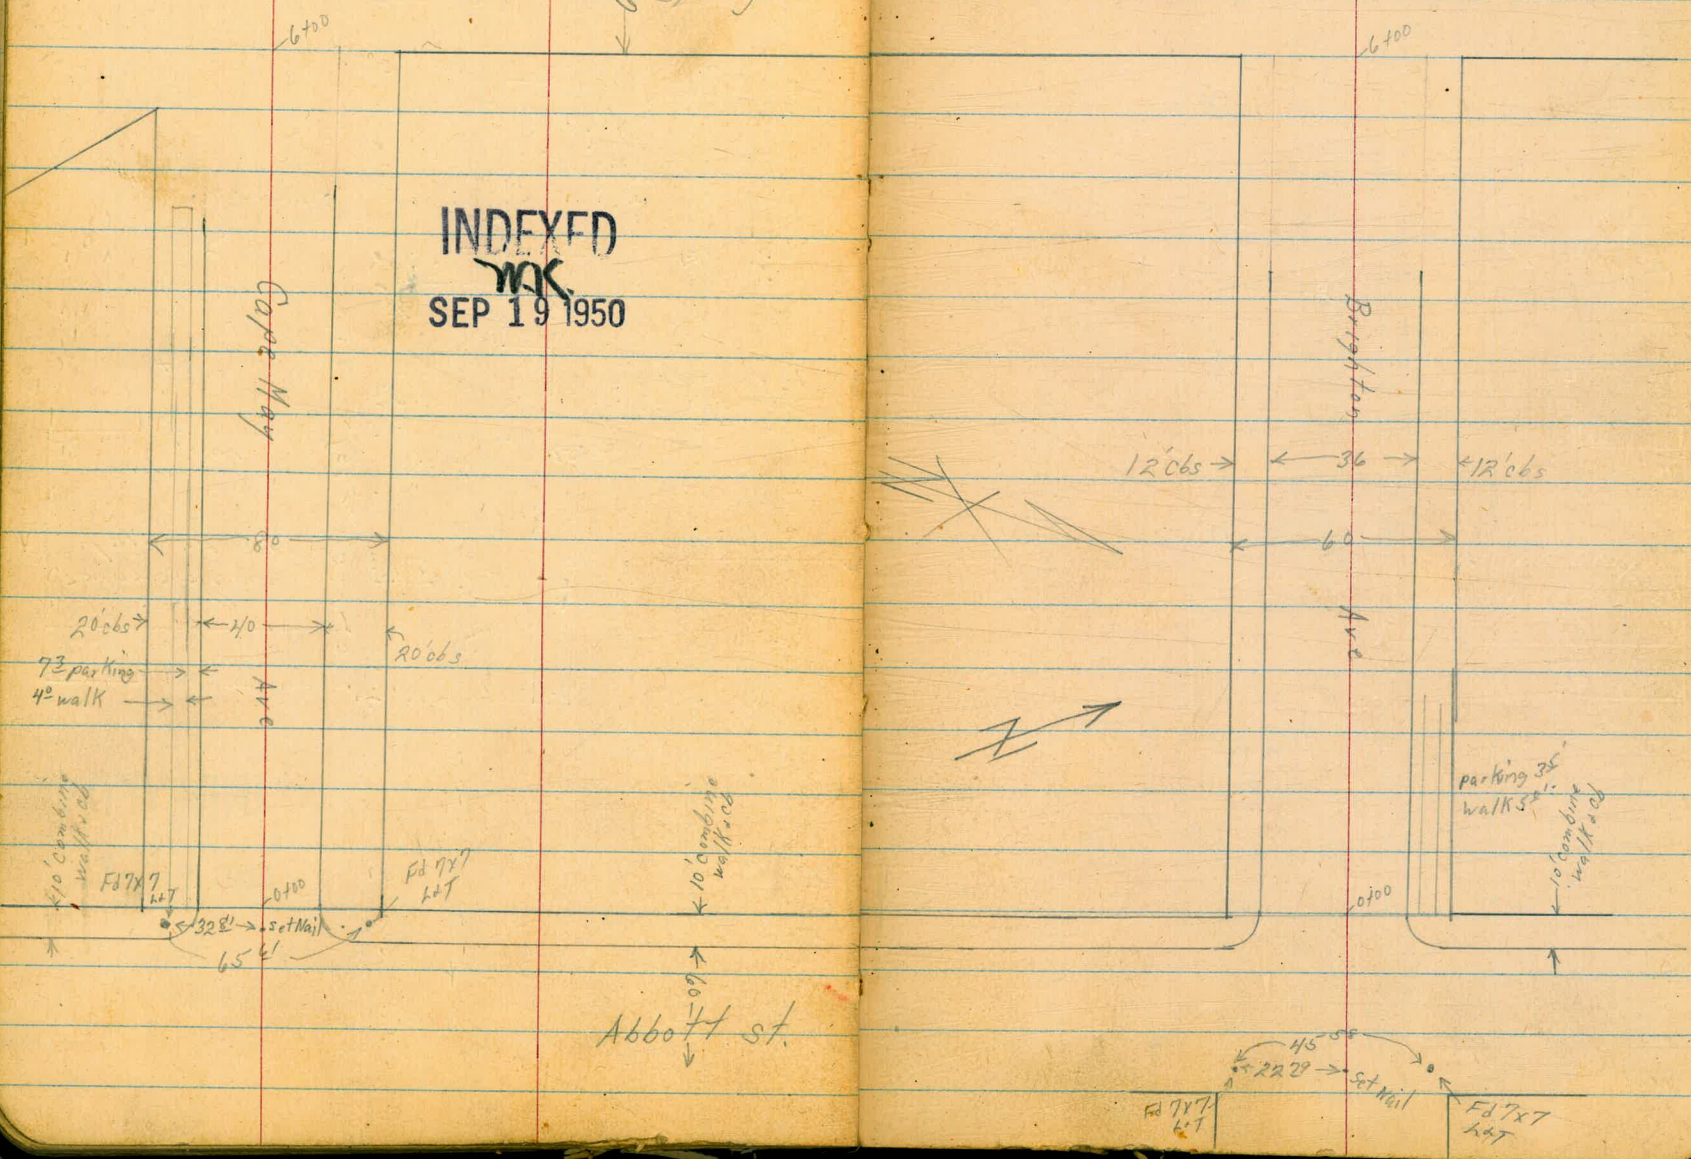 6+00
INDEXED
SEP 19 1950
Cape May
80
20'cbs
40
20'cbs
7 3 parking
4 0 walk
Ave
10' Combine
walk & cb
Fd 7x7
L&T
0+00
Fd 7x7
L&T
Set Nail
10' Combine
walk & cb
60'
Abbott st.
6+00
Brighton
12'cbs
36
12'cbs
60
Ave
N
parking 3 5
walk 5
10' Combine
walk & cb
0+00
45 58
22 29
Set Nail
Fd 7x7
L&T
Fd 7x7
L&T